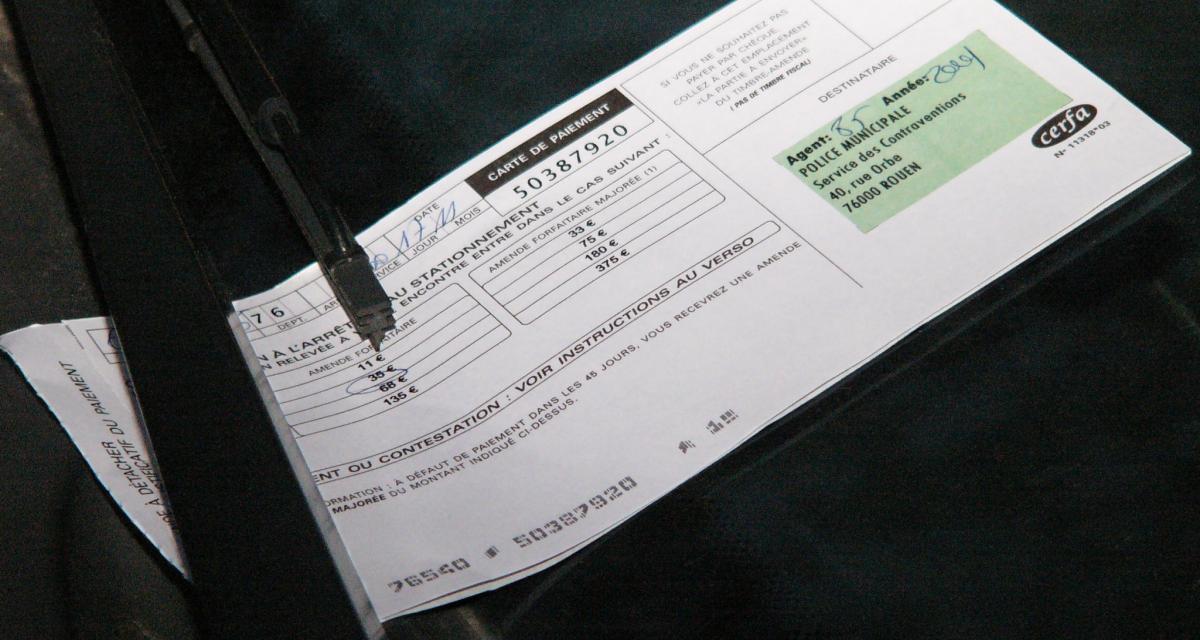 SI VOUS NE SOUHAITEZ PAS
PAYER PAR CHÈQUE
COLLEZ A CET EMPLACEMENT
«LA PARTIE A ENVOYER»
DU TIMBRE-AMENDE
( PAS DE TIMBRE FISCAL)
DESTINATAIRE
Agent: 85 Année:
POLICE MUNICIPALE
Service des Contraventions
40, rue Orbe
76000 ROUEN
cerfa
N° 11318*03
CARTE DE PAIEMENT
50387920
DATE
17 11
JOUR MOIS
76
DEPT.
AU STATIONNEMENT
ENCONTRE ENTRE DANS LE CAS SUIVANT :
N A L'ARRÊT
N RELEVÉE A
AMENDE FORFAITAIRE
11 €
35 €
68 €
135 €
AMENDE FORFAITAIRE MAJORÉE (1)
33 €
75 €
180 €
375 €
ENT OU CONTESTATION : VOIR INSTRUCTIONS AU VERSO
ORMATION : A DÉFAUT DE PAIEMENT DANS LES 45 JOURS, VOUS RECEVREZ UNE AMENDE
MAJORÉE DU MONTANT INDIQUÉ CI-DESSUS.
76540 * 50387920
A DÉTACHER DU PAIEMENT